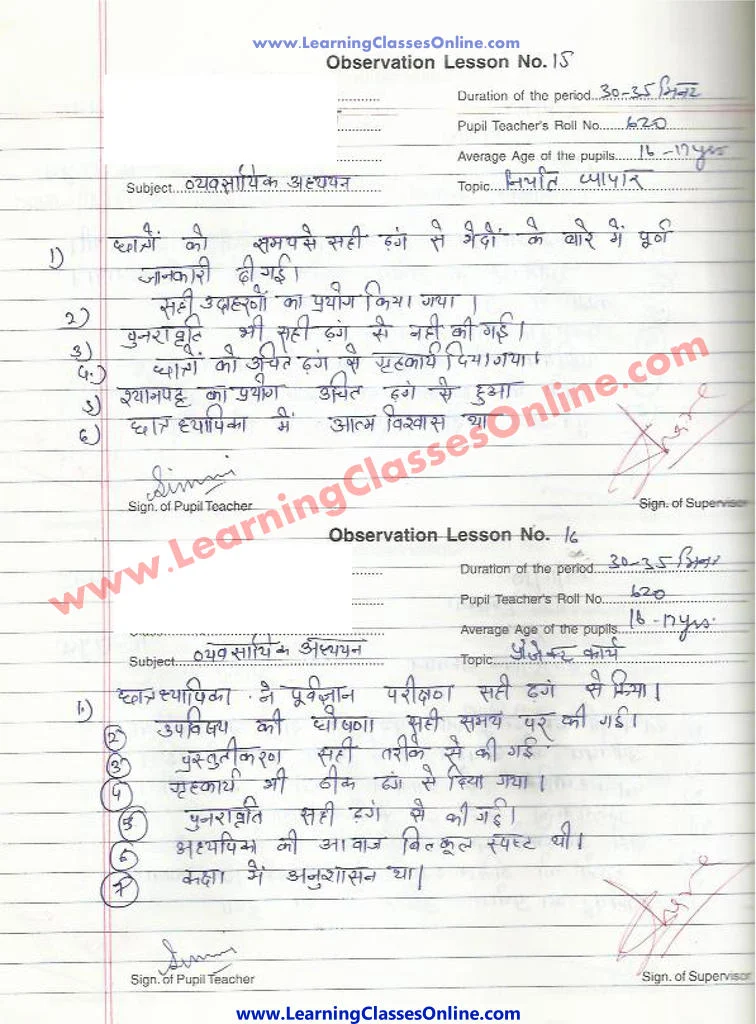 www.LearningClassesOnline.com
Observation Lesson No. 15
Duration of the period 30-35 मिनट
Pupil Teacher's Roll No. 620
Average Age of the pupils 16-17 yrs
Subject व्यवसायिक अध्ययन Topic निर्यात व्यापार
1) छात्रों को समय से सही ढ़ंग से भेदों के बारे में पूर्ण
जानकारी दी गई।
2) सही उदाहरणों का प्रयोग किया गया।
3) पुनरावृति भी सही ढ़ंग से नही की गई।
4.) छात्रों को उचित ढ़ंग से गृहकार्य दिया गया।
5) श्यामपट्ट का प्रयोग उचित ढ़ंग से हुआ
6) छात्र ध्यापिका में आत्म विश्वास था
Simmi
Sign. of Pupil Teacher Sign. of Supervisor
www.LearningClassesOnline.com
Observation Lesson No. 16
Duration of the period 30-35 मिनट
Pupil Teacher's Roll No 620
Average Age of the pupils 16-17 yrs.
Subject व्यवसायिक अध्ययन Topic प्रोजेक्ट कार्य
1) छात्र ध्यापिका ने पूर्वज्ञान परीक्षण सही ढ़ंग से किया।
2 उपविषय की घोषणा सही समय पर की गई।
3 प्रस्तुतीकरण सही तरीके से की गई
4 गृहकार्य भी ठीक ढ़ंग से दिया गया।
5 पुनरावृति सही ढ़ंग से की गई।
6 अध्यपिक की आवाज बिल्कूल स्पष्ट थी।
7 कक्षा में अनुशासन था।
Simmi
Sign. of Pupil Teacher Sign. of Supervisor
www.LearningClassesOnline.com